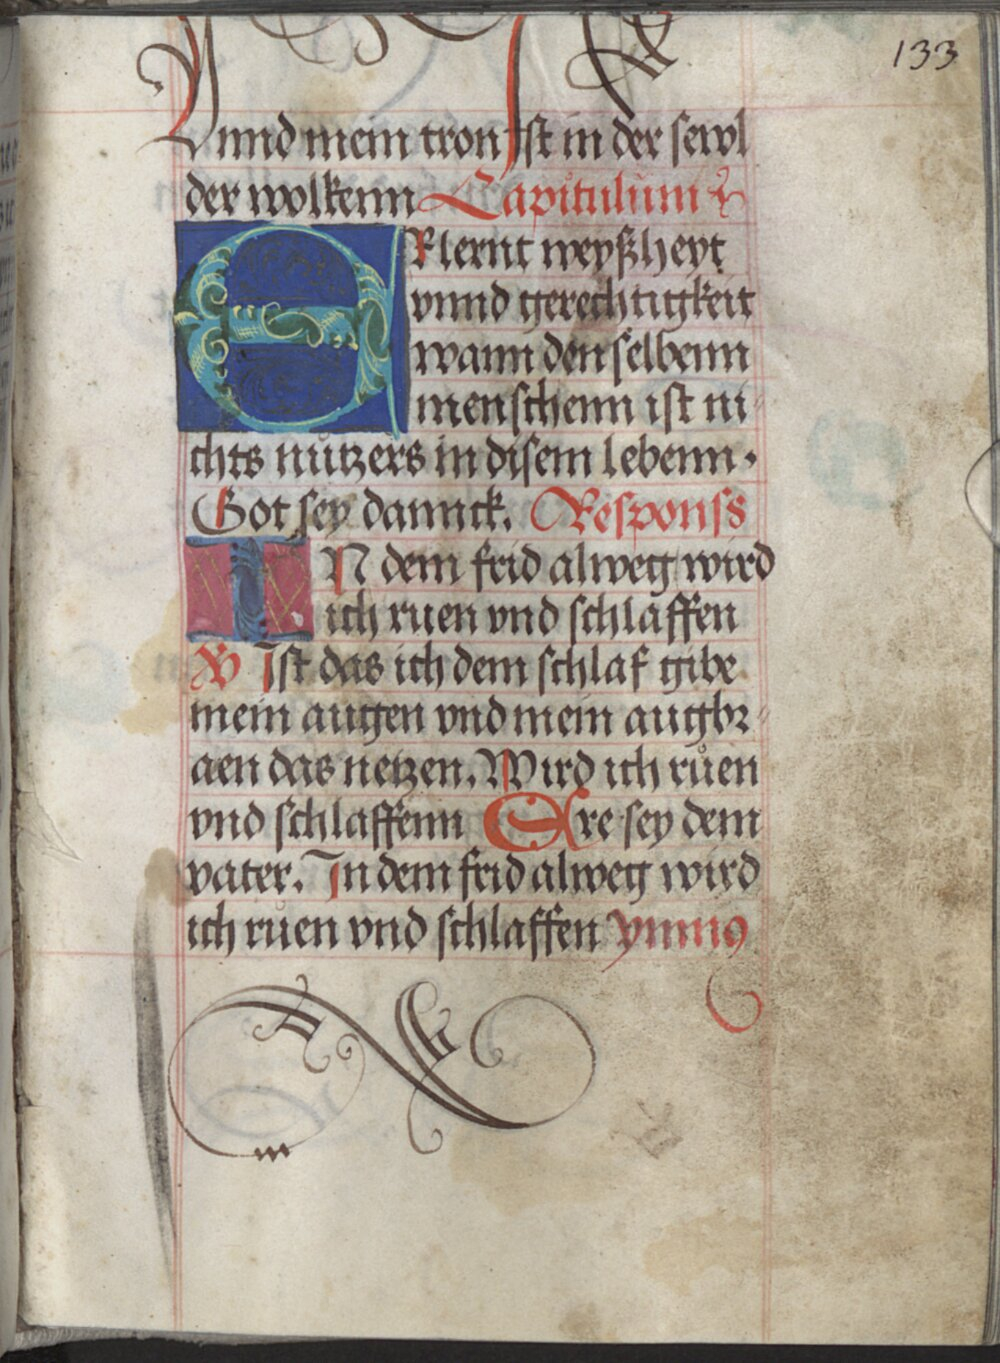 133
Vnnd mein tron Ist in der sewl
der wolkenn Capitulum
ERlernt weyßheyt
vnnd gerechtigkeit
wann den selbenn
menschenn ist ni
chts nützers in disem lebenn.
Got sey dannck. Responss
IN dem frid alweg wird
ich ruen vnd schlaffen
V Ist das ich dem schlaf gibe
mein augen vnd mein augbr
aen das netzen. Wird ich růen
vnd schlaffenn Ere sey dem
vater. In dem frid alweg wird
ich růen vnd schlaffen ymnus